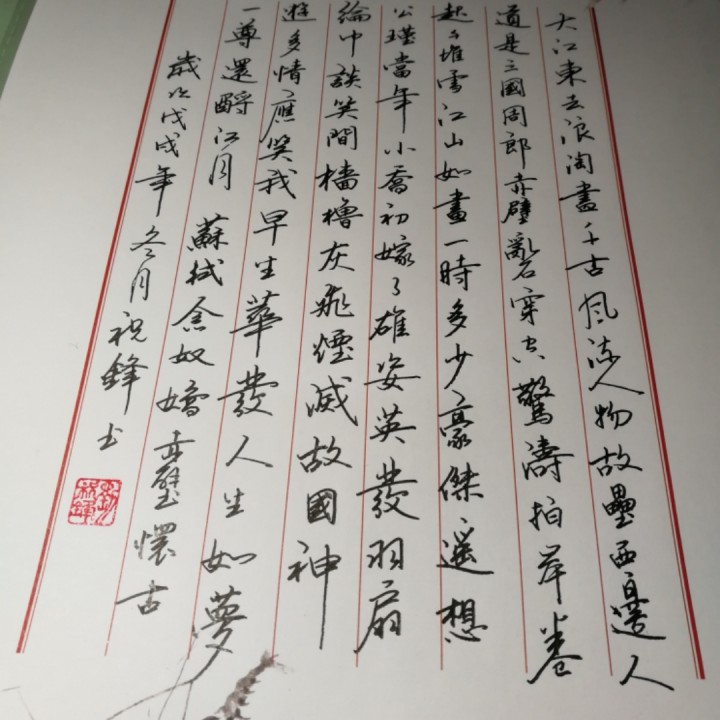 大江東去浪淘盡千古風流人物故壘西邊人
道是三國周郎赤壁亂石穿空驚濤拍岸卷
起千堆雪江山如畫一時多少豪傑遙想
公瑾當年小喬初嫁了雄姿英發羽扇
綸巾談笑間檣櫓灰飛煙滅故國神
遊多情應笑我早生華發人生如夢
一尊還酹江月 蘇軾念奴嬌赤壁懷古
歲次戊戌年冬月祝鋒书